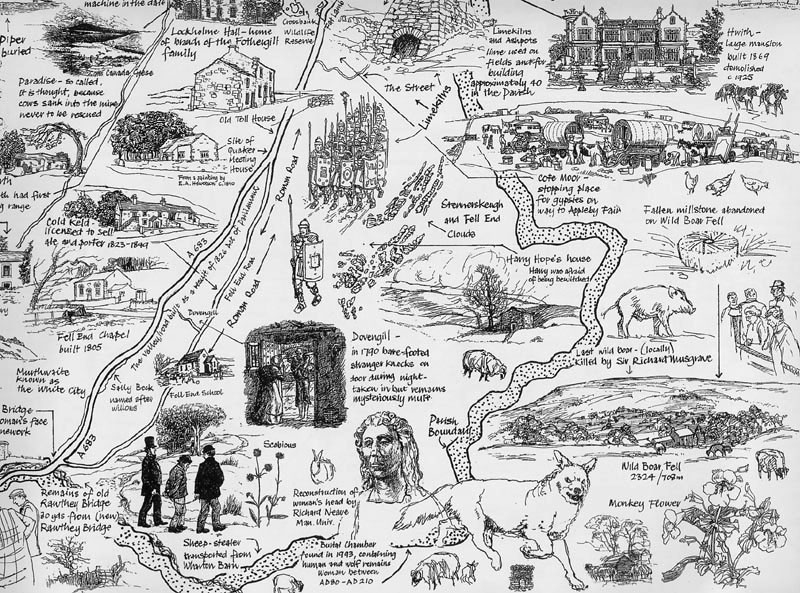 machine in the dale
Piper
buried
Paradise - so called,
it is thought, because
cows sank into the mire
never to be rescued
Canada Geese
Lockholme Hall - home
of branch of the Fothergill
family
Old Toll House
Crossbank
Wildlife
Reserve
Site of
Quaker
Meeting
House
From a painting by
The Street
Limekilns
Limekilns
and Ashpots
lime used on
fields and for
building
approximately 40
in the Parish
large mansion
built 1869
demolished
c 1925
Cote Moor
stopping place
for gypsies on
way to Appleby Fair
Fallen millstone abandoned
on Wild Boar Fell
had first
range
Cold Keld -
licensed to sell
ale and porter 1823-1849
A683
The Valley road built as a result of 1826 Act of Parliament
Fell End Road
Roman Road
Roman Road
Stennerskeugh
and Fell End
Clouds
Harry Hope's house
Harry was afraid
of being bewitched
Fell End Chapel
built 1805
Dovengill
Murthwaite
known as
the White City
Sally Beck
named after
willows
Fell End School
Dovengill
in 1790 bare-footed
stranger knocks on
door during night-
taken in but remains
mysteriously mute
Last wild boar - (locally)
killed by Sir Richard Musgrave
Parish
Boundary
Wild Boar Fell
2324'/708m
Bridge
woman's face
A683
Remains of old
Rawthey Bridge
20 yds from (new)
Rawthey Bridge
Scabious
Sheep-stealer
transported from
Wharton Barn
Reconstruction of
woman's head by
Richard Neave
Man. Univ.
Burial Chamber
found in 1993, containing
human and wolf remains
Woman between
AD80-AD210
Monkey Flower